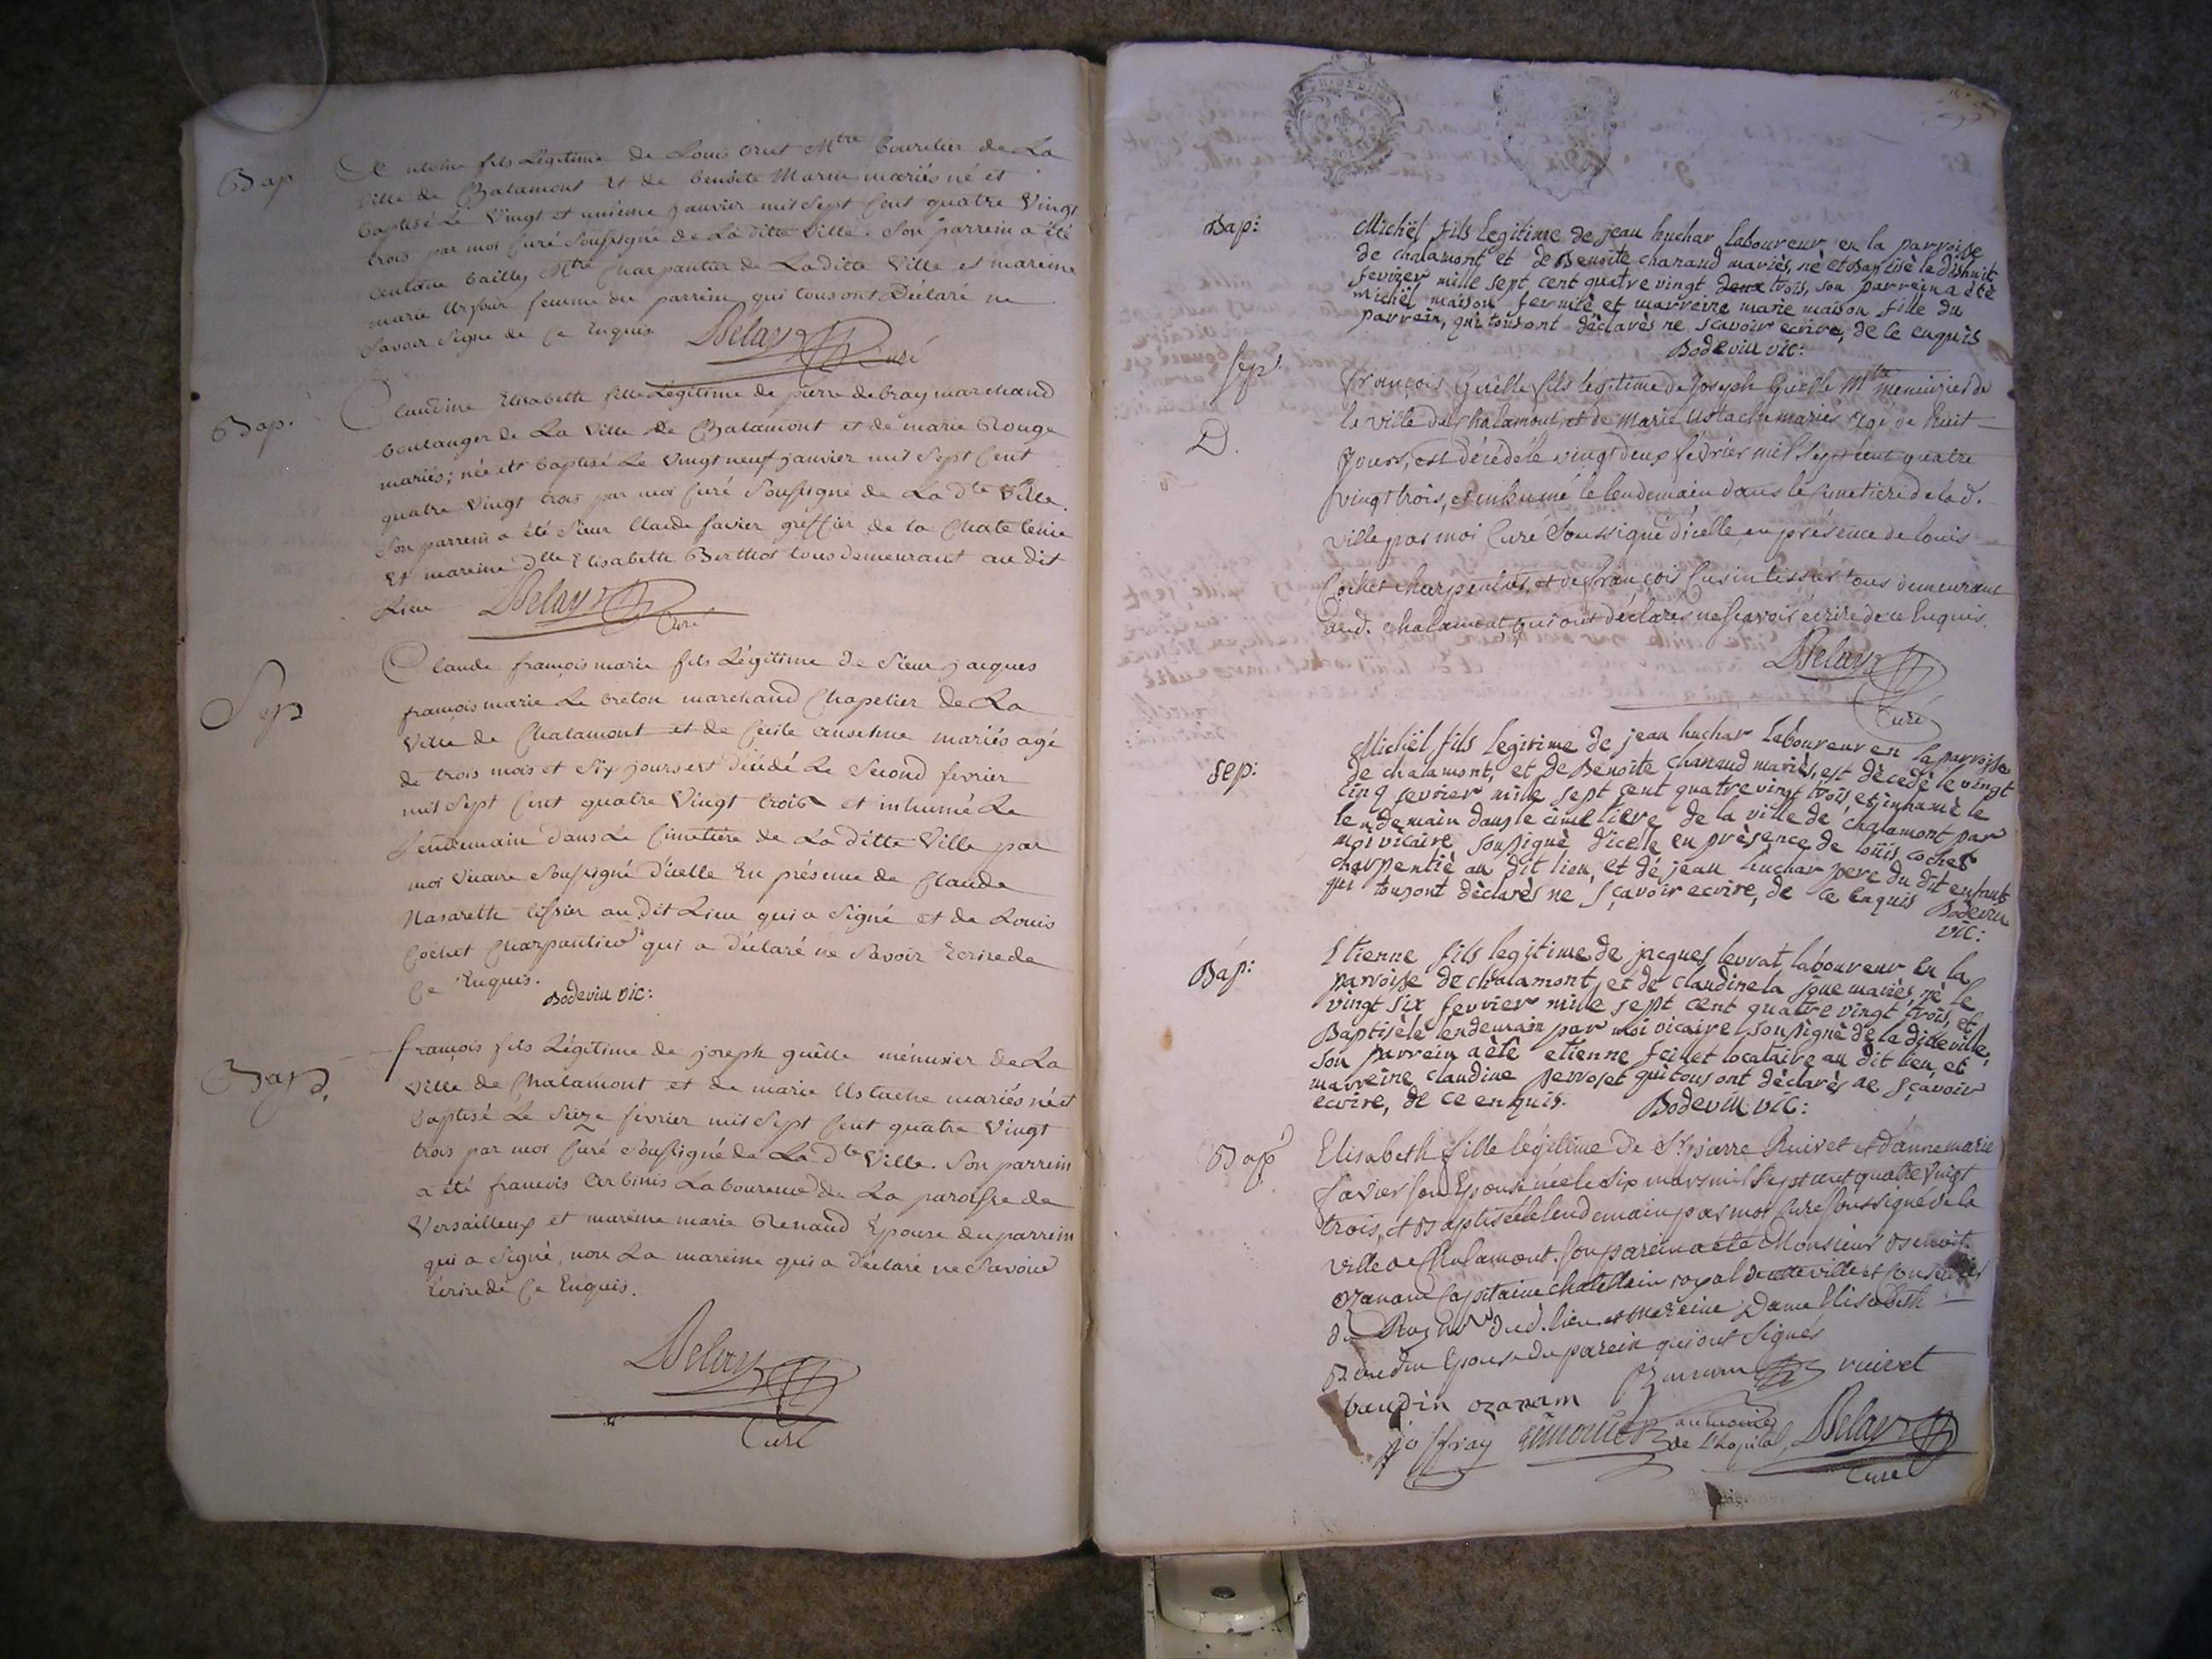 Bap
Antoine fils Légitime de Louis Mtre bourelier de La
ville de Chalamont et de benoite mariés né et
baptisé Le Vingt et unieme janvier mil Sept Cent quatre Vingt
trois par moi Curé Soussigné de La ditte Ville. Son parrein a été
antoine bailly Mtre Charpantier de Laditte Ville et mareine
marie femme du parrein qui tous ont Déclaré ne
Savoir Signé de Ce Enquis Delay Curé
Bap.
Claudine Elisabette fille Légitime de pierre debray marchand
boulanger de La Ville de Chalamont et de marie Rouge
mariés; née et baptisé Le Vingt neuf janvier mil Sept Cent
quatre Vingt trois par moi Curé Soussigné de La dte Ville.
Son parrein a été Sieur Claude favier greffier de la Chatelenie
Et mareine dlle Elisabette Berthot tous demeurant au dit
Lieu Delay Curé
Sep
Claude françois marie fils Légitime de Sieur jacques
françois marie Le breton marchand Chapelier de La
Ville de Chalamont et de Cecile anselme mariés agé
de trois mois et Six jours est décédé Le Second fevrier
mil Sept Cent quatre Vingt trois et inhumé Le
Lendemain dans Le Cimetière de La ditte Ville par
moi Vicaire Soussigné d'icelle En présence de Claude
Nasareth tissier au dit Lieu qui a Signé et de Louis
Cochet Charpantier qui a déclaré ne Savoir Ecrire de
Ce Enquis. Bodevin vic:
Bap.
françois fils Légitime de joseph guëlle ménusier de La
Ville de Chalamont et de marie Ustache mariés né et
baptisé Le Seize février mil Sept Cent quatre Vingt
trois par moi Curé Soussigné de La dte Ville. Son parrein
a été francois Laboureur de La paroisse de
Versailleux et mareine marie Renaud Epouse du parrein
qui a Signé, non La mareine qui a déclaré ne Savoir
Ecrire de Ce Enquis.
Delay
Curé
Bap:
Michel fils legitime de jean huchar laboureur en la parroisse
de chalamont et de Benoite chanaud mariès, nè et Baptisè le dishuit
fevrier mille sept cent quatre vingt deux trois, son parrein a ètè
michel maison et marreine marie maison fille du
parrein, qui tous ont dèclarès ne sçavoir ecrire, de ce enquis
Bodevin vic:
Sep.
D.
François Guëlle fils légitime de Joseph Guëlle Mtre menuizier de
la ville de Chalamont, et de Marie Ustache mariés Agé de huit
Jours, est décédé le vingt deux février mil Sept cent quatre
vingt trois, et inhumé le lendemain dans le Cimetiere de lad.
ville par moi Curé Soussigné d'icelle en présence de louis
Cochet charpentier, et de François Cusin tissier tous demeurant
aud. chalamont, qui ont déclarés ne sçavoir écrire de ce Enquis.
Delay
Curé
Sep:
Michel fils legitime de jean huchar laboureur en la parroisse
de chalamont, et de Benoite chanaud mariès, est dècedè le vingt
cinq fevrier mille sept cent quatre vingt trois, et inhumè le
lendemain dans le cimetiere de la ville de chalamont par
moi vicaire soussignè d'icele en prèsence de loüis cochet
charpentiè au dit lieu, et de jean huchar pere du dit enfant
qui tous ont dèclarès ne sçavoir ecrire, de ce enquis Bodevin
vic:
Bap:
Etienne fils legitime de jacques levrat laboureur en la
parroisse de chalamont, et de claudine la mariès, nè le
vingt six fevrier mille sept cent quatre vingt trois, et
Baptisè le lendemain par moi vicaire soussignè de la dite ville,
son parrein a ètè etienne locataire au dit lieu, et
marreine claudine perroset qui tous ont dèclarès ne sçavoir
ecrire, de ce enquis. Bodevin vic:
Bap.
Elisabeth fille légitime de Sr pierre Ruivet et d'anne marie
favier Son Epouse née le Six mars mil Sept cent quatre vingt
trois, et Baptisée le lendemain par moi Curé Soussigné de la
ville de Chalamont. Son parein a été Monsieur Benoit
ozanam Capitaine chatellain royal de cette ville et Conseiller
du Roy dud. lieu et mareine Dame Elisabeth
Baudin Epouse du parein qui ont Signés
baudin ozanam Ozanam ruivet
joffray aumonier
de L'hopital, Delay
Curé